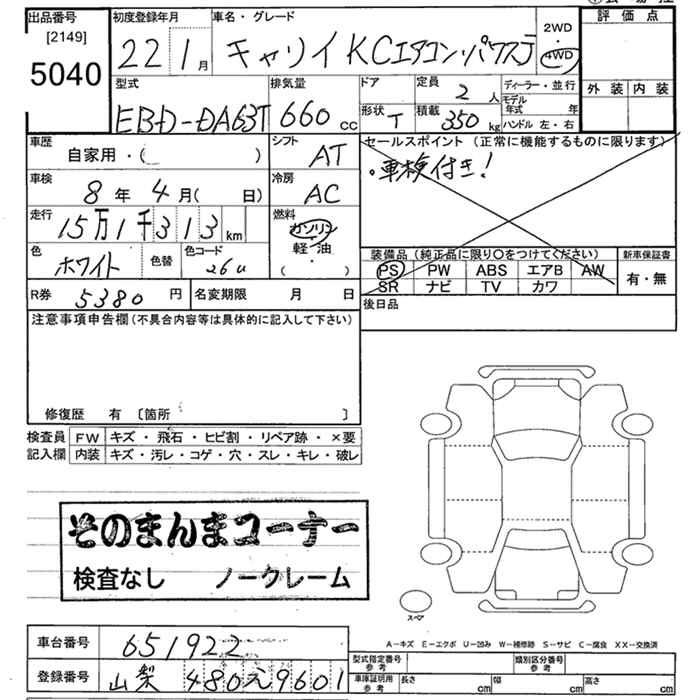 出品番号 初度登録年月 車名・グレード 評価点
[2149] 5040 22 1月 キャリイ KCエアコン・パワステ 2WD 4WD
外装 内装
型式 排気量 ドア 定員 2人 ディーラー・並行
モデル年式 年
EBD-DA63T 660cc 形状 T 積載 350kg ハンドル 左・右
車歴 自家用・( ) シフト AT セールスポイント(正常に機能するものに限ります)
車検付き!
車検 8年4月( 日) 冷房 AC
走行 15万1千313km 燃料 ガソリン
軽・油
( )
色 ホワイト 色替 色コード 26U
装備品(純正品に限り○をつけてください) 新車保証書
PS PW ABS エアB AW 有・無
SR ナビ TV カワ
R券 5380円 名変期限 月 日 後日品
注意事項申告欄(不具合内容等は具体的に記入して下さい)
修復歴 有 〔箇所 〕
検査員 FW キズ・飛石・ヒビ割・リペア跡・×要
記入欄 内装 キズ・汚レ・コゲ・穴・スレ・キレ・破レ
そのまんまコーナー
検査なし ノークレーム
スペア
A-キズ E-エクボ U-凹み W-補修跡 S-サビ C-腐食 XX-交換済
車台番号 651922
型式指定番号 参考 類別区分番号 参考
登録番号 山梨480え9601
車庫証明用 参考 長さ cm 幅 cm 高さ cm